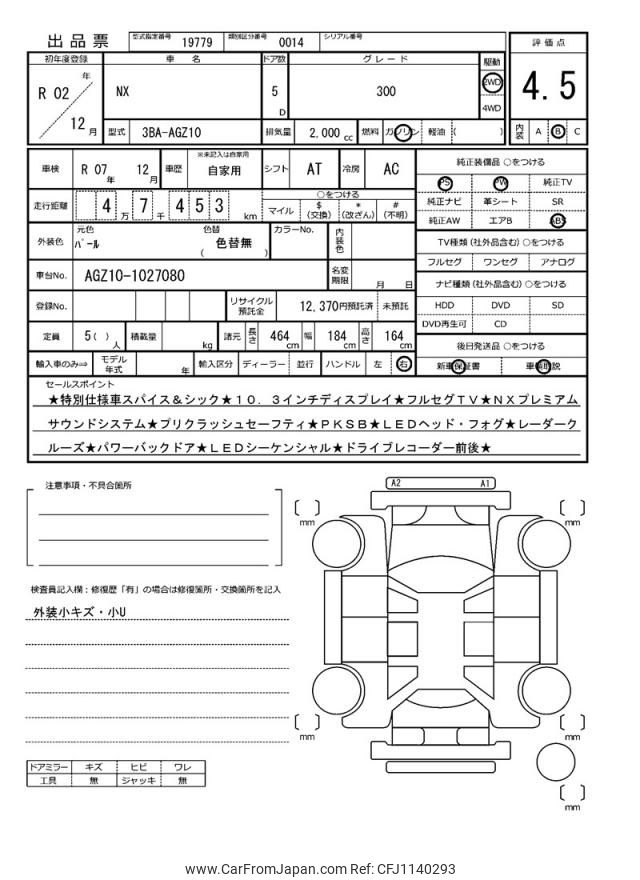 出品票 型式指定番号 19779 類別区分番号 0014 シリアル番号
評価点
4.5
内装 A B C
初年度登録 車名 ドア数 グレード 駆動
R 02 年 12 月
NX 5 D 300 2WD 4WD
型式 3BA-AGZ10 排気量 2,000 cc 燃料 ガソリン 軽油 ( )
車検 R 07 年 12 月 車歴 ※未記入は自家用 自家用 シフト AT 冷房 AC
走行距離 4 万 7 千 4 5 3 km
○をつける
マイル $ (交換) * (改ざん) # (不明)
外装色 元色 パール 色替 色替無 ( ) カラーNo. 内装色
車台No. AGZ10-1027080 名変期限 月 日
登録No. リサイクル預託金 12,370円預託済 未預託
定員 5( ) 人 積載量 kg 諸元 長さ 464 cm 幅 184 cm 高さ 164 cm
輸入車のみ⇒ モデル年式 年 輸入区分 ディーラー 並行 ハンドル 左 右
純正装備品 ○をつける
PS PW 純正TV
純正ナビ 革シート SR
純正AW エアB ABS
TV種類 (社外品含む) ○をつける
フルセグ ワンセグ アナログ
ナビ種類 (社外品含む) ○をつける
HDD DVD SD
DVD再生可 CD
後日発送品 ○をつける
新車保証書 車輌取説
セールスポイント
★特別仕様車スパイス&シック★10.3インチディスプレイ★フルセグTV★NXプレミアム
サウンドシステム★プリクラッシュセーフティ★PKSB★LEDヘッド・フォグ★レーダーク
ルーズ★パワーバックドア★LEDシーケンシャル★ドライブレコーダー前後★
注意事項・不具合箇所
検査員記入欄:修復歴「有」の場合は修復箇所・交換箇所を記入
外装小キズ・小U
ドアミラー キズ ヒビ ワレ
工具 無 ジャッキ 無
A2 A1
mm mm
mm mm
mm
www.CarFromJapan.com Ref: CFJ1140293